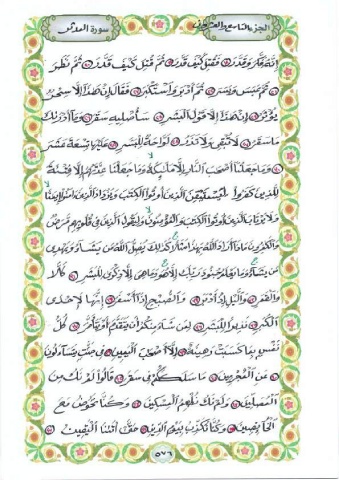 سورة المدثر
الجزء التاسع والعشرون
إنه فكر وقدر فقتل كيف قدر ثم قتل كيف قدر ثم نظر
ثم عبس وبسر ثم أدبر واستكبر فقال إن هذا إلا سحر
يؤثر إن هذا إلا قول البشر سأصليه سقر وما أدرىك
ما سقر لا تبقي ولا تذر لواحة للبشر عليها تسعة عشر
وما جعلنا أصحب النار إلا ملىكة وما جعلنا عدتهم إلا فتنة
للذين كفروا ليستيقن الذين أوتوا الكتب ويزداد الذين ءامنوا إيمنا
ولا يرتاب الذين أوتوا الكتب والمؤمنون وليقول الذين في قلوبهم مرض
والكفرون ماذا أراد الله بهذا مثلا كذلك يضل الله من يشاء ويهدي
من يشاء وما يعلم جنود ربك إلا هو وما هي إلا ذكرى للبشر كلا
والقمر واليل إذ أدبر والصبح إذا أسفر إنها لإحدى
الكبر نذيرا للبشر لمن شاء منكم أن يتقدم أو يتأخر كل
نفس بما كسبت رهينة إلا أصحب اليمين في جنت يتساءلون
عن المجرمين ما سلككم في سقر قالوا لم نك من
المصلين ولم نك نطعم المسكين وكنا نخوض مع
الخائضين وكنا نكذب بيوم الدين حتى أتىنا اليقين
٥٧٦